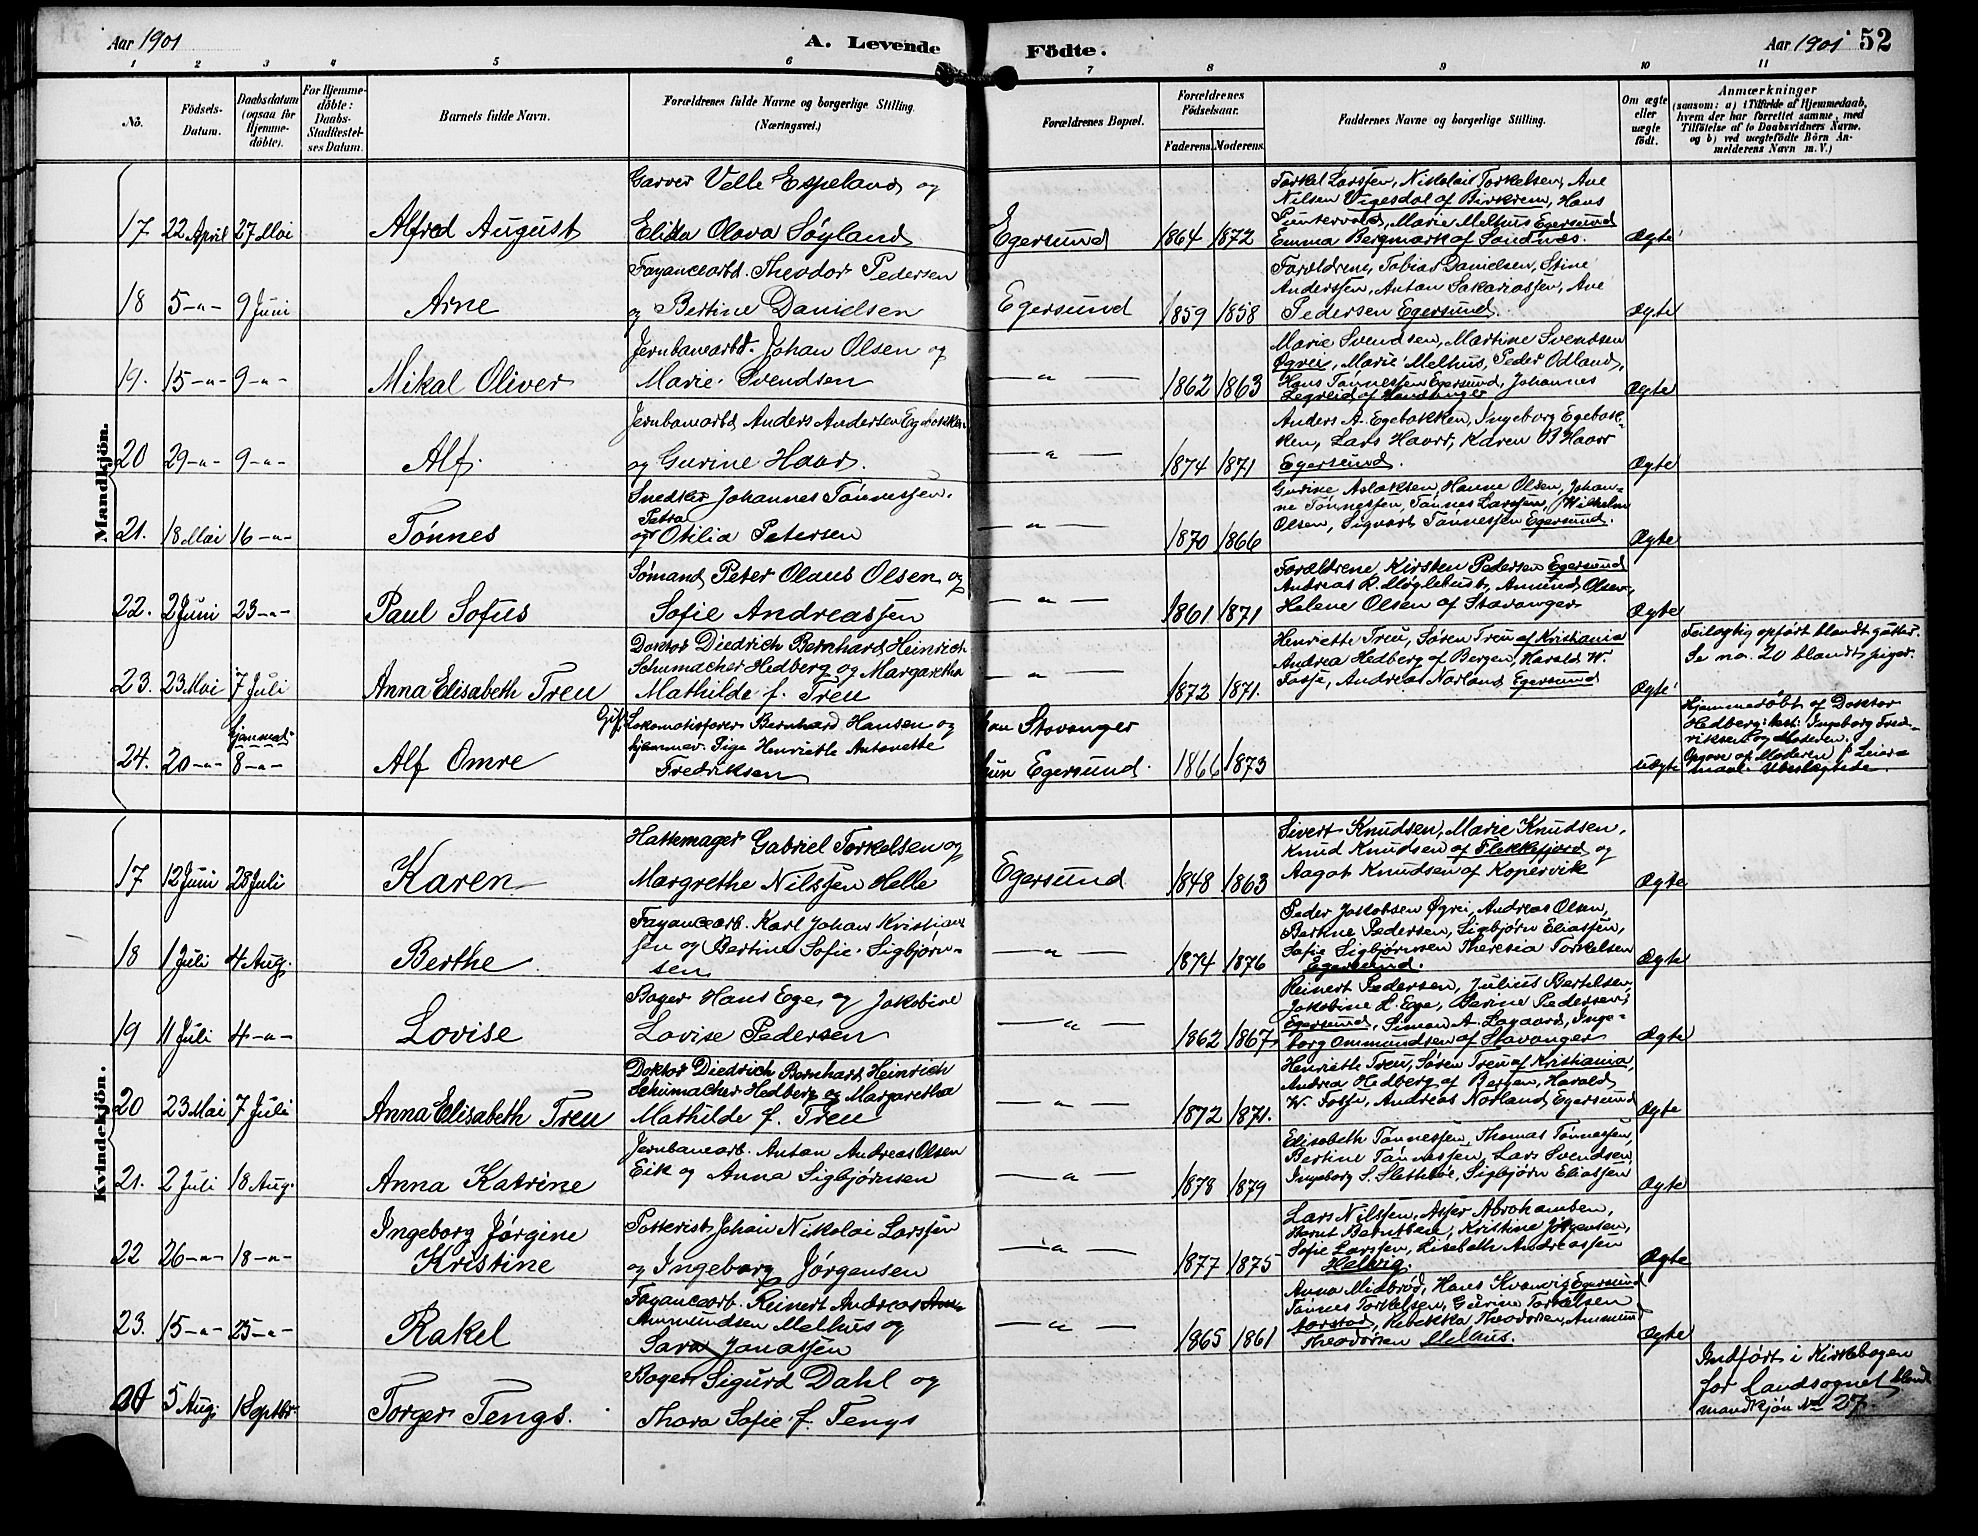 Aar 1901
A. Levende Födte.
Aar 1901 52
1 2 3 4 5 6 7 8 9 10 11
No.
Födsels-
Datum.
Daabsdatum
(ogsaa for
Hjemme-
döbte).
For Hjemme-
döbte:
Daabs-
Stadfestel-
ses Datum.
Barnets fulde Navn.
Forældrenes fulde Navne og borgerlige Stilling.
(Næringsvei.)
Forældrenes Bopæl.
Forældrenes
Födselsaar.
Faderens. Moderens.
Faddernes Navne og borgerlige Stilling.
Om ægte
eller
uægte
födt.
Anmærkninger
(saasom: a) i Tilfælde af Hjemmedaab,
hvem der har forrettet samme, med
Tilföielse af to Daabsvidners Navne.
og b) ved uægtefödte Börn An-
melderens Navn m. V.)
Mandkjön.
17 22 April 27 Mai Alfred August
Garver Velle Espeland og
Elida Olava Søyland
Egersund 1864 1872
Torkel Larssen, Nikolai Torkelsen, Ane
Nilsen Vigesdal af Birkrem, Hans
Puntervold, Marie Melhus Egersund
Emma Bergmark af Sandnæs.
Ægte
18 5-"- 9 Juni Arne
Fayancearbd. Theodor Pedersen
og Bertine Danielsen
Egersund 1859 1858
Forældrene, Tobias Danielsen, Stine
Anderssen, Anton Sakariassen, Ane
Pedersen Egersund.
Ægte
19. 15-"- 9-"- Mikal Oliver
Jernbanearbd. Johan Olsen og
Marie Svendsen
— " — 1862 1863
Marie Svendsen, Martine Svendsen
Øgrei, Marie Melhus, Peder Odland,
Hans Tønnessen Egersund, Johannes
Legreid af Hardanger
Ægte
20 29-"- 9-"- Alf.
Jernbanearbd Anders Andersen Egebakken
og Gurine Haar.
— " — 1874 1871
Anders A. Egebakken, Ingeborg Egebak-
ken, Lars Haar, Karen B Haar
Egersund.
Ægte
21. 18 Mai 16-"- Tønnes
Snedker Johannes Tønnessen.
Petra
og Otilia Petersen
— " — 1870 1866
Gurine Aslaksen, Hanne Olsen, Johan-
ne Tønnessen, Tønnes Larssen, Wilhelm
Olsen, Sigvart Tønnessen Egersund.
Ægte
22. 2 Juni 23-"- Paul Sofus
Sømand, Peter Olaus Olsen og
Sofie Andreassen
— " — 1861 1871
Forældrene Kirsten Pedersen Egersund
Andreas R. Møglebust, Amund Olsen,
Helene Olsen af Stavanger
Ægte
23. 23 Mai 7 Juli Anna Elisabeth Treu
Doktor Diedrich Bernhard Heinrich
Schumacher Hedberg og Margaretha
Mathilde f. Treu
— " — 1872 1871.
Henriette Treu, Søren Treu af Kristiania
Andrea Hedberg af Bergen, Harald W.
Fosse, Andreas Norland Egersund
Ægte
Feilagtig opført blandt gutter.
Se no. 20 blandt piger.
24. 20-"- Hjemmed. 8-"- Alf Omre
Gift Lokomotivfører Bernhard Hansen og
hjemmev. Pige Henriette Antonette
Fredriksen
han Stavanger
hun Egersund. 1866 1873
uægte
Hjemmedøbt af Doktor
Hedberg: test: Ingeborg Fred-
riksen og Moderen.
Opgave af Moderen. 1 Leier-
maal. Ubeslægtede.
Kvindekjön.
17 12 Juni 28 Juli Karen
Hattemager Gabriel Torkelsen og
Margrethe Nilssen Helle
Egersund 1848 1863
Sivert Knudsen, Marie Knudsen,
Knud Knudsen af Flekkefjord og
Aagot Knudsen af Kopervik
Ægte
18 1 Juli 4 Aug. Berthe
Fayancearb. Karl Johan Kristian-
sen og Bertine Sofie Sigbjørn-
sen
— " — 1874 1876
Peder Jakobsen Øgrei, Andreas Olsen,
Bertine Pedersen, Sigbjørn Eliassen,
Sofie Sigbjørnsen Theresia Torkelsen
Egersund.
Ægte
19 11 Juli 4-"- Lovise
Bager Hans Ege, og Jakobine
Lovise Pedersen
— " — 1862 1867
Reinert Pedersen, Julius Bertelsen,
Jakobine L. Ege, Berine Pedersen,
Egersund, Simon A. Lagaard, Inge-
borg Ommundsen af Stavanger
Ægte
20 23 Mai 7 Juli Anna Elisabeth Treu
Doktor Diedrich Bernhard Heinrich
Schumacher Hedberg og Margaretha
Mathilde f. Treu
— " — 1872 1871.
Henriette Treu, Søren Treu af Kristiania,
Andrea Hedberg af Bergen, Harald
W. Fosse, Andreas Norland, Egersund
Ægte
21. 2 Juli 18 Aug. Anna Katrine
Jernbanearb. Anton Andreas Olsen
Eik og Anna Sigbjørnsen
— " — 1878 1879
Elisabeth Tønnessen, Thomas Tønnessen,
Bertine Tønnessen, Lars Svendsen,
Ingeborg S. Slettebøe, Sigbjørn Eliassen
Ægte
22 26-"- 18-"- Ingeborg Jørgine
Kristine
Potterist Johan Nikolai Larssen
og Ingeborg Jørgensen
— " — 1877 1875
Lars Nilssen, Asser Abrahamsen,
Bernt Berntsen, Kristine Jørgensen,
Sofie Larssen, Lisebeth Andreassen
Hellvig.
Ægte
23. 15-"- 25-"- Rakel
Fayancearb. Reinert Andreas
Ammundsen Melhus og
Sara Jonassen
— " — 1865 1861
Anna Midbrød, Hans Kvanvig Egersund
Tønnes Torkelsen, Gurine Torkelsen
Aarstad, Rebekka Theodorsen, Ammund
Theodorsen Melhus.
Ægte
24 5 Aug. 1 Septbr. Torger Tengs.
Bager Sigurd Dahl og
Thora Sofie f. Tengs
Indført i Kirkebogen
for landsognet blandt
mandkjøn No 27.